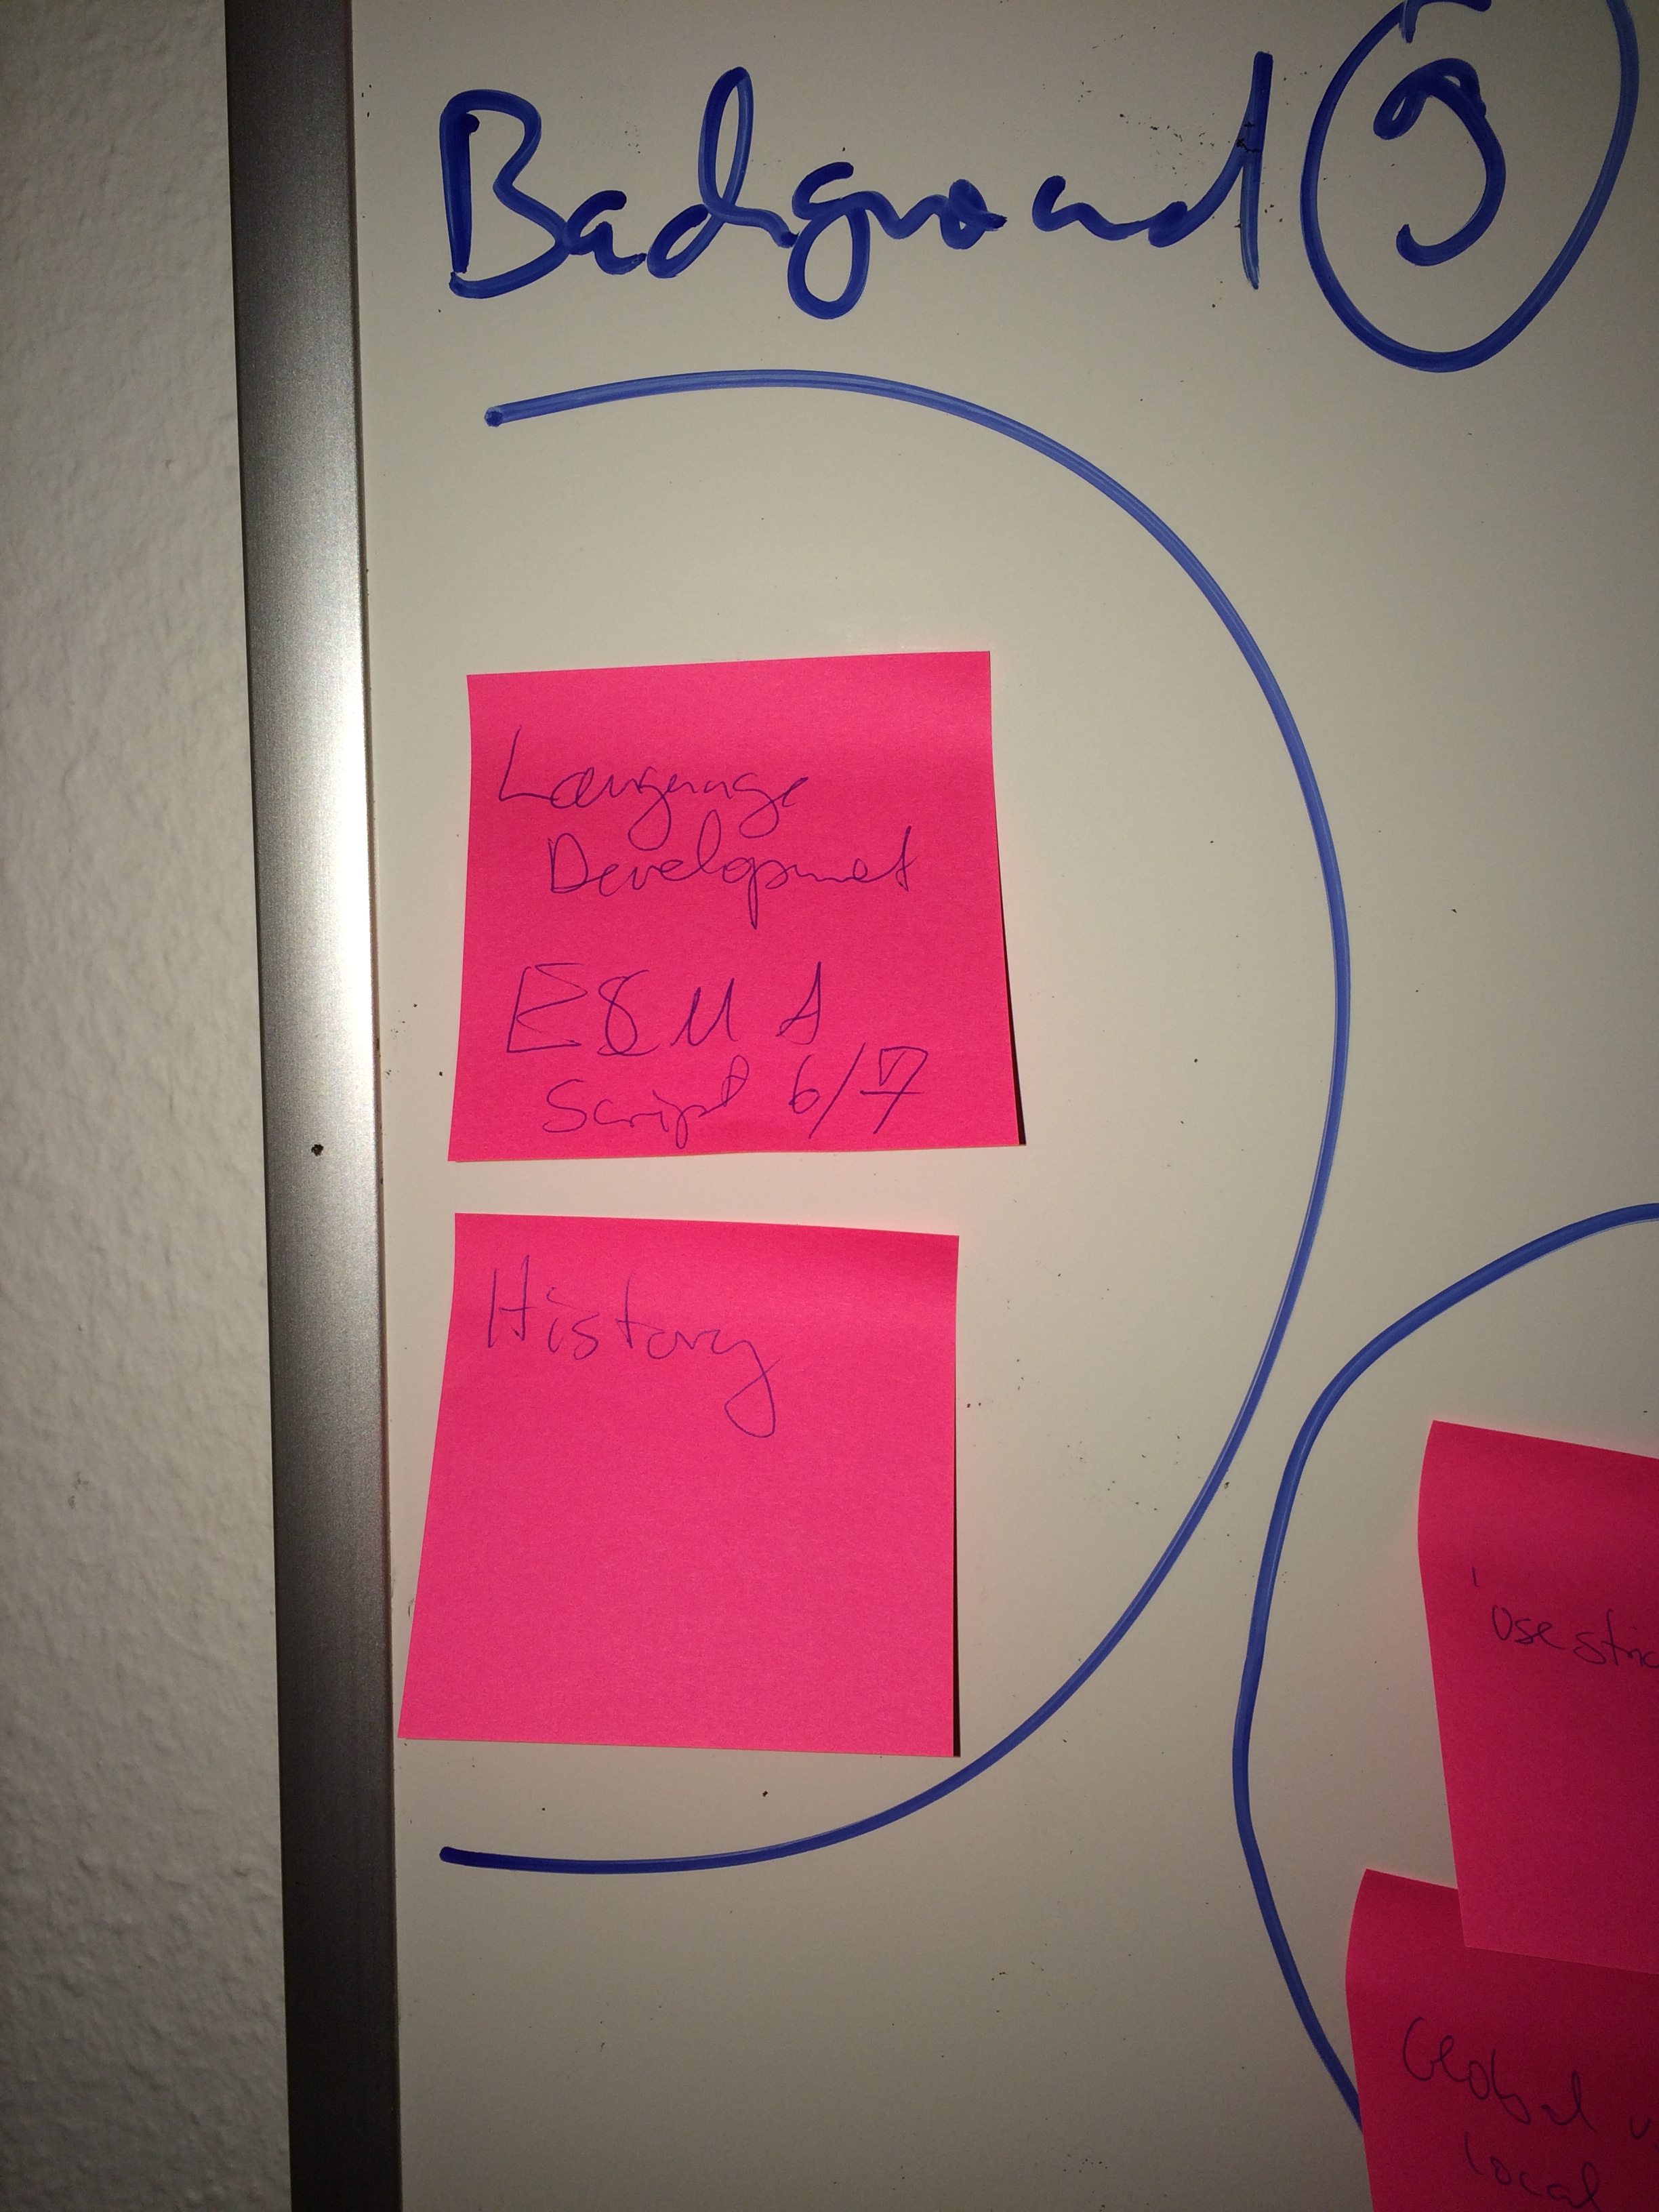 Background 5
Language
Development
ECMA
Script 6/7
History
'use stric
Global v
local